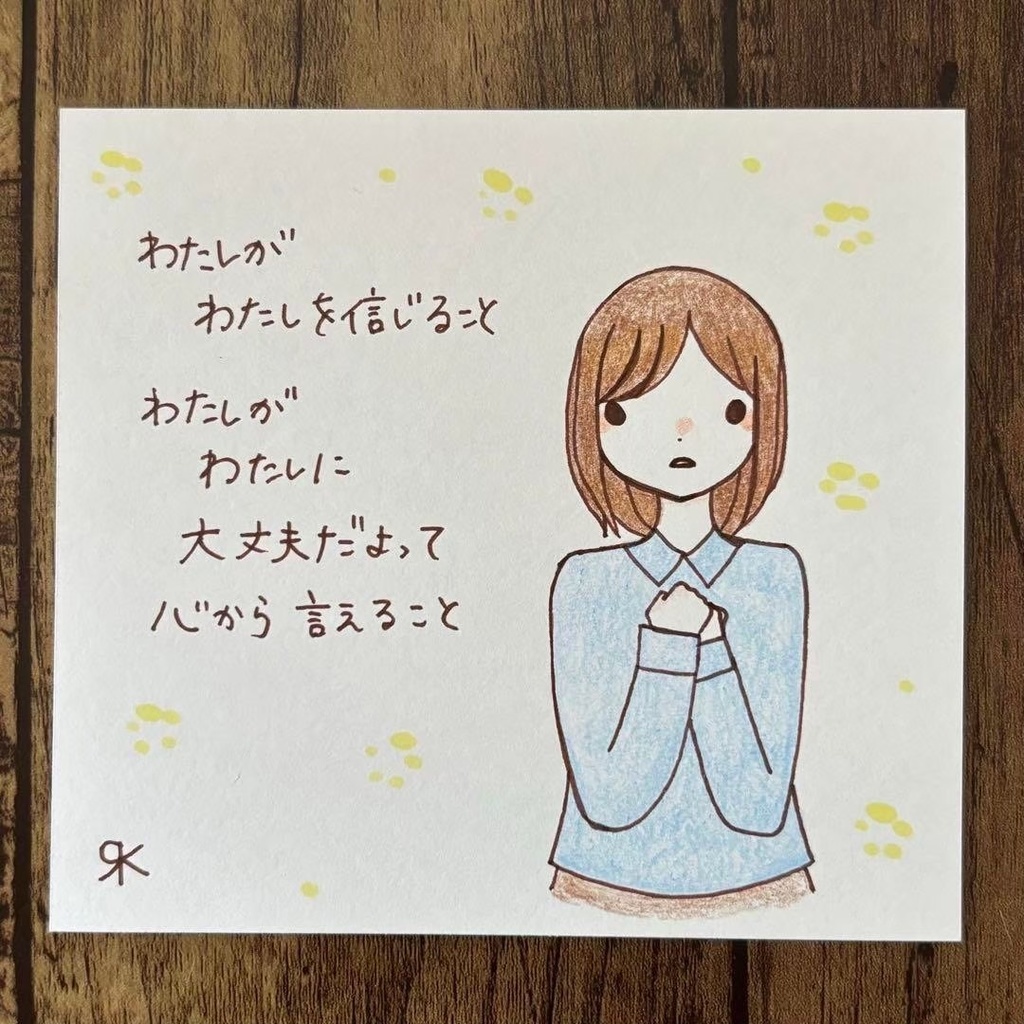 わたしが
わたしを信じること
わたしが
わたしに
大丈夫だよって
心から言えること